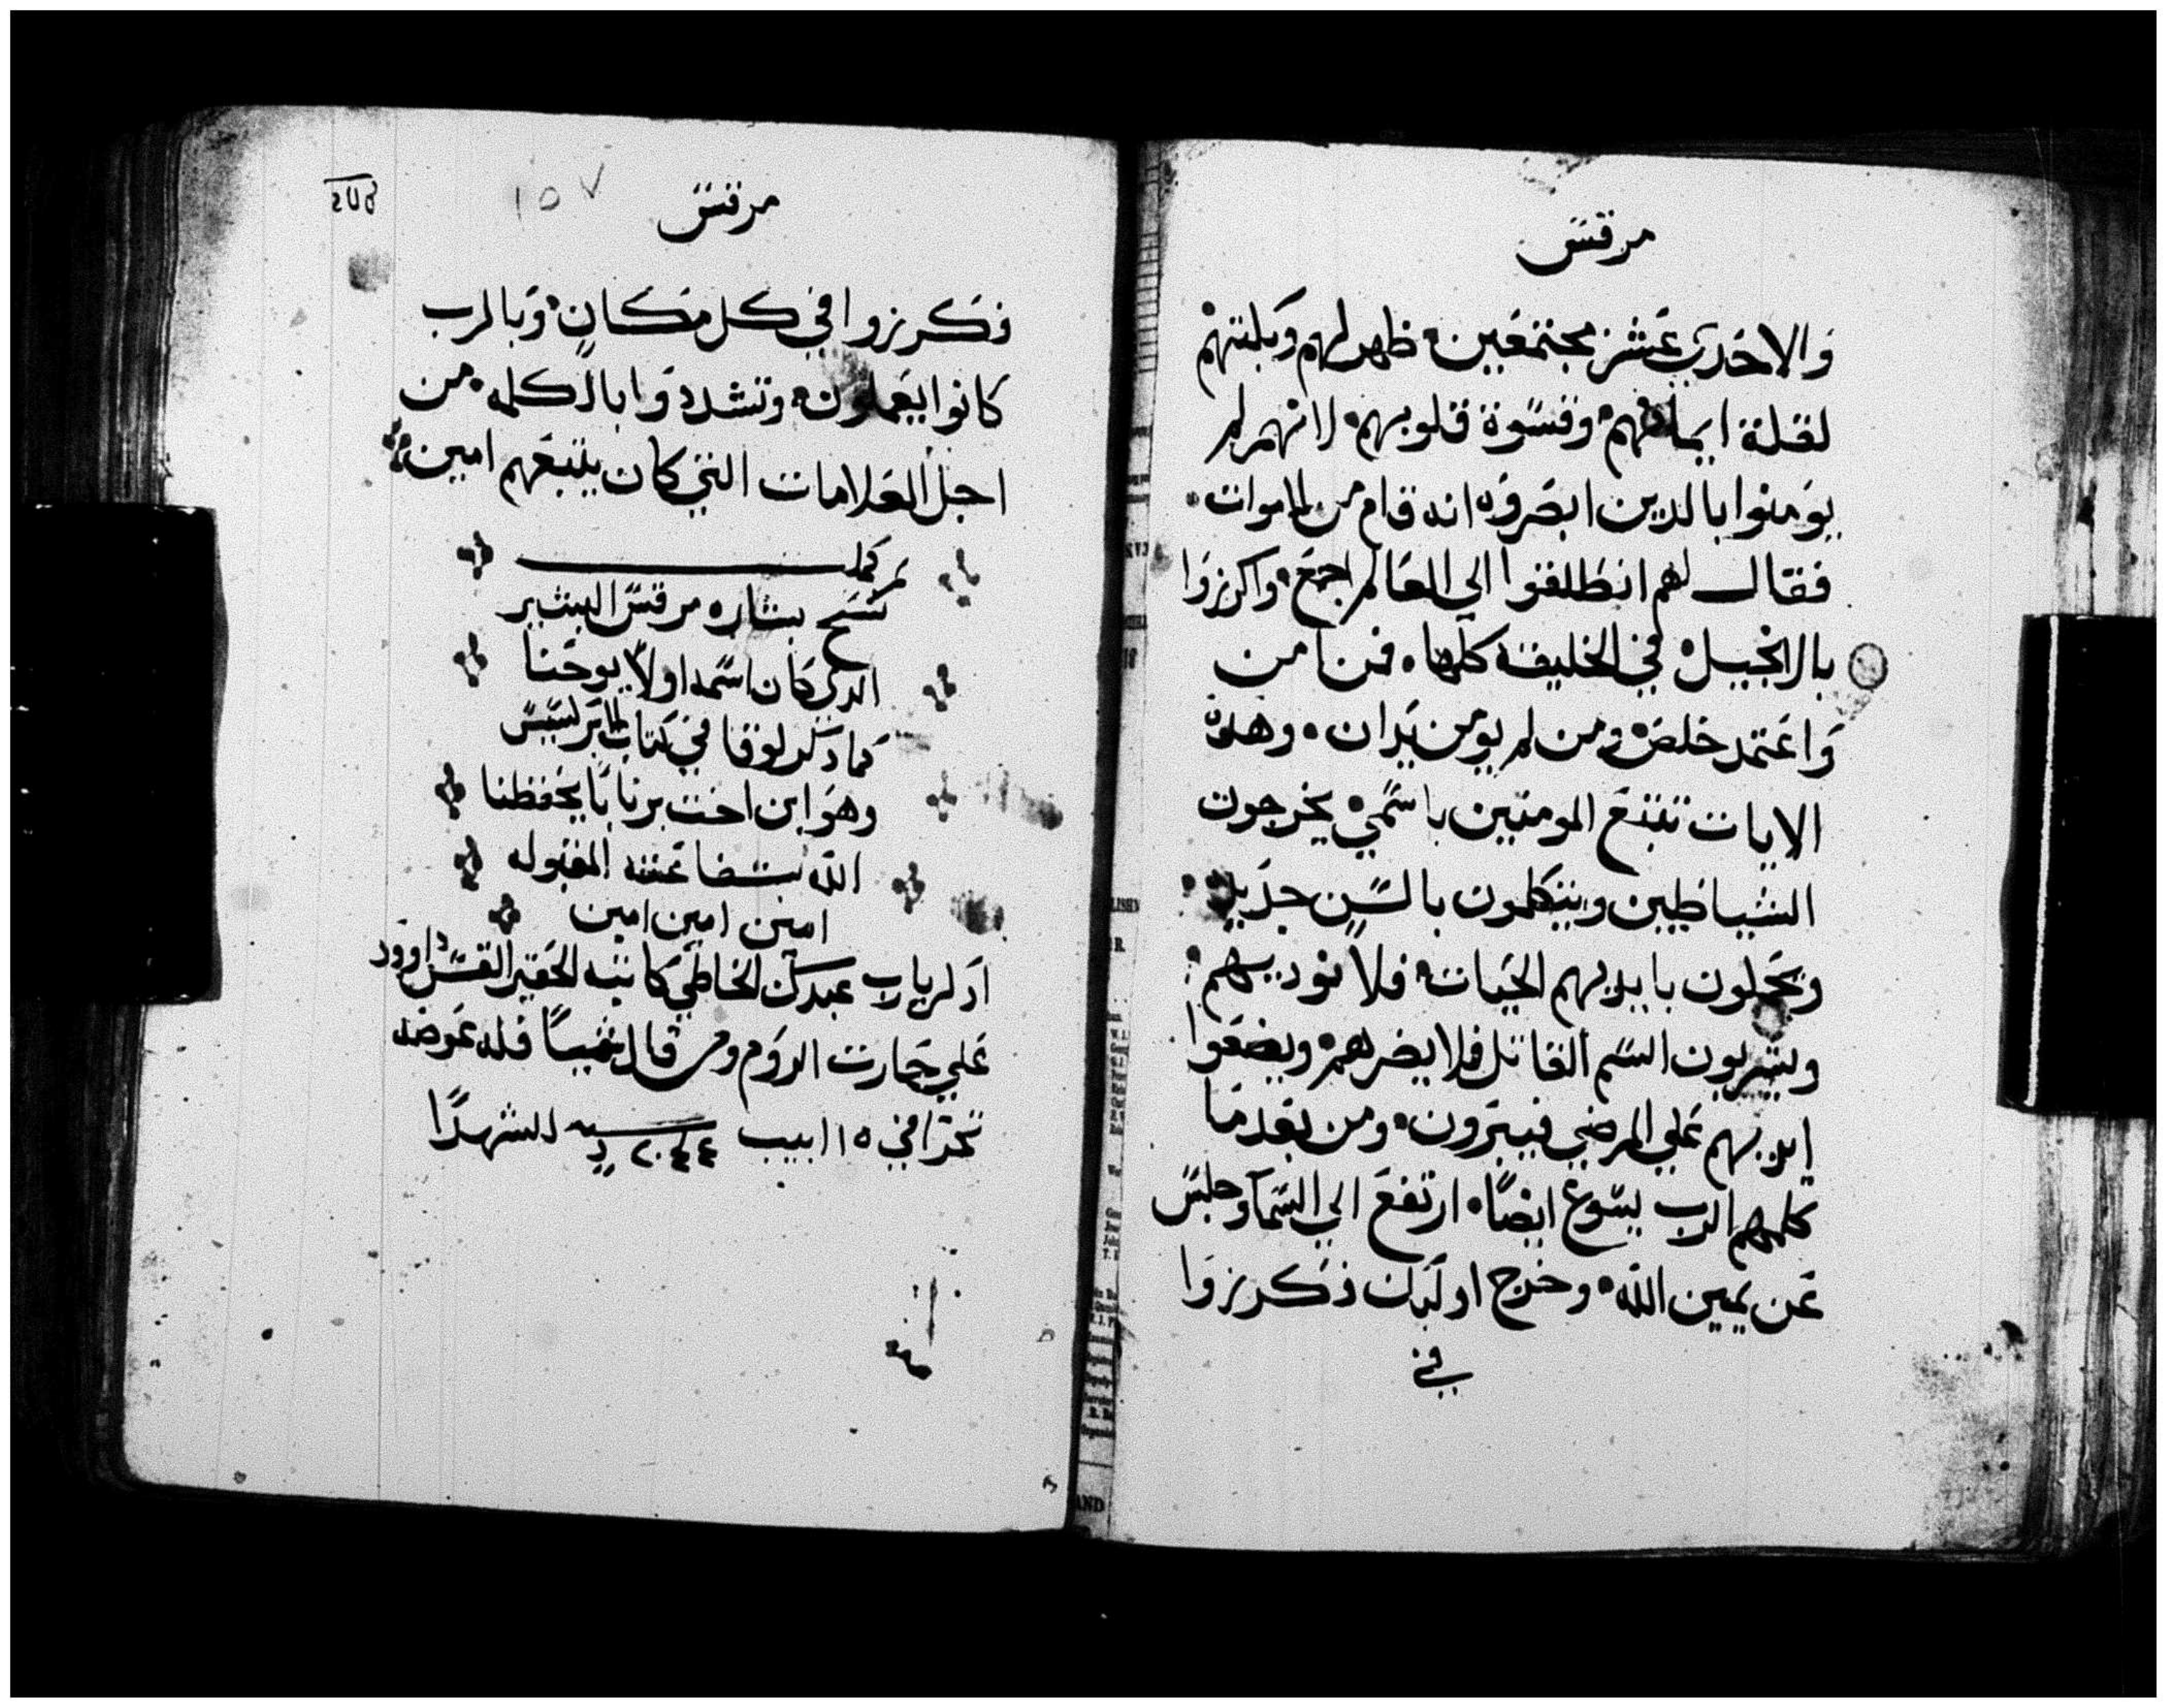 مرقس
والاحدي عشر مجتمعين ظهر لهم وبكتهم
لقلة ايمانهم وقسوة قلوبهم لانهم لم
يومنوا بالدين ابصروه انه قام من الاموات
فقال لهم انطلقوا الي العالم اجمع واكرزوا
بالانجيل في الخليقة كلها فمن امن
واعتمد خلص ومن لم يومن يدان وهده
الايات تتبع المومنين باسمي يخرجون
الشياطين ويتكلمون بالسن جديدة
ويحملون بايديهم الحيات فلا توديهم
ويشربون السم القاتل فلا يضرهم ويضعوا
ايديهم علي المرضي فيبرون ومن بعد ما
كلمهم الرب يسوع ايضا ارتفع الي السما وجلس
عن يمين الله وخرج اوليك فكرزوا
في
مرقس
١٥٧
فكرزوا في كل مكان وبالرب
كانوا يعملون وتشددوا بالكلمه من
اجل العلامات التي كان يتبعهم امين
كمل
نسخ بشاره مرقس البشير
الدي كان اسمه اولا يوحنا
كما دكر لوقا في كتاب الابركسيس
وهو ابن اخت برنابا يحفظنا
الله بشفاعته المقبوله
امين امين امين
ادكر يارب عبدك الخاطي كاتبه الحقير القس داوود
علي حارت الروم ومن قال شيا فله عوضه
تحرا في ١٥ ابيب للشهدا